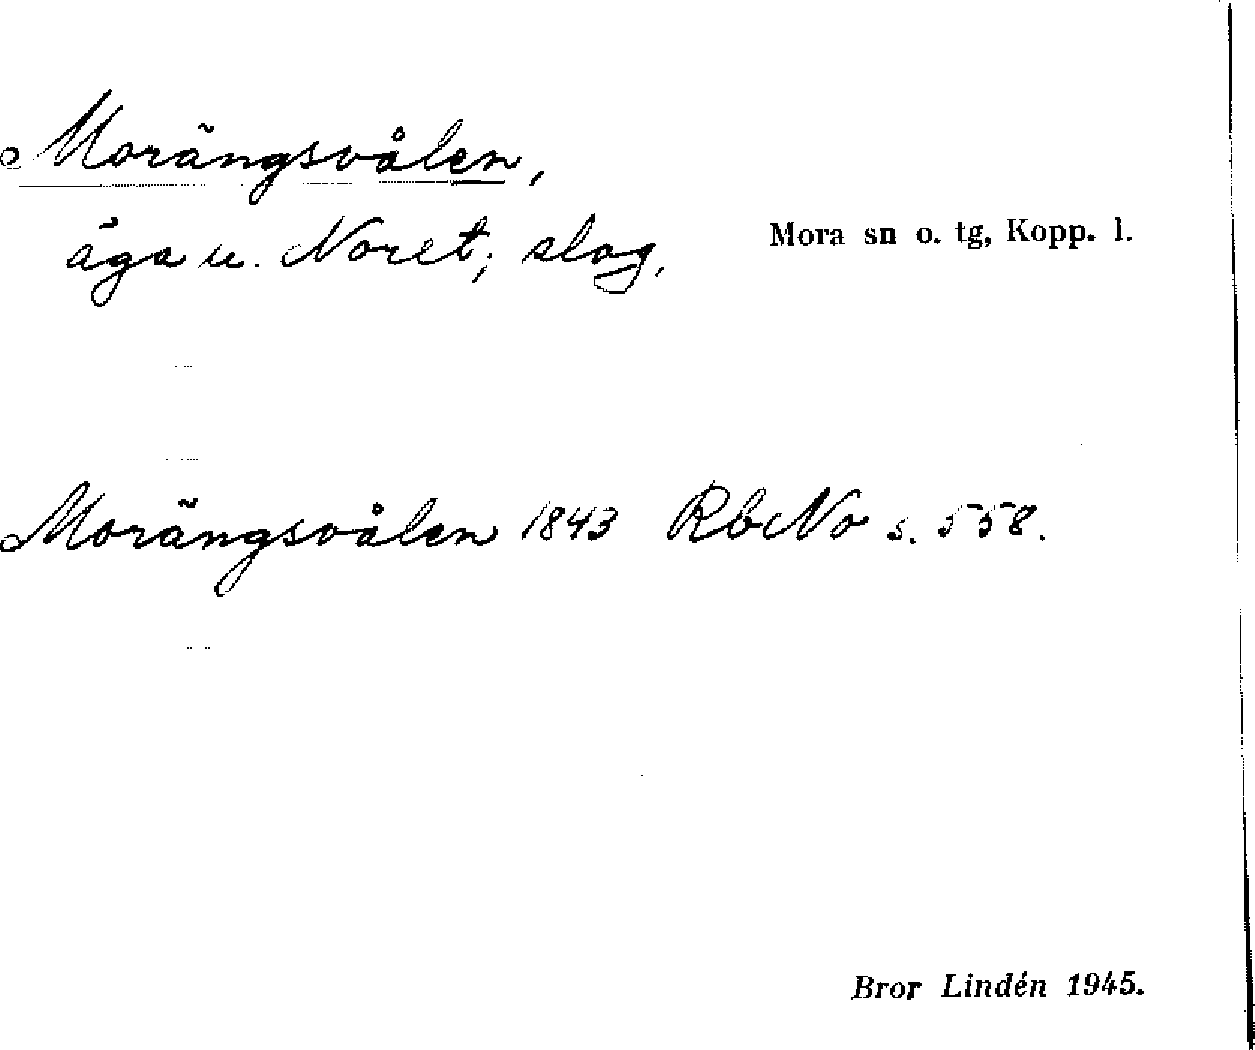 Morängsvålen,
äga u. Noret; slog.
Mora sn o. tg, Kopp. l.
Morängsvålen 1843 RbNo s. 558.
Bror Lindén 1945.